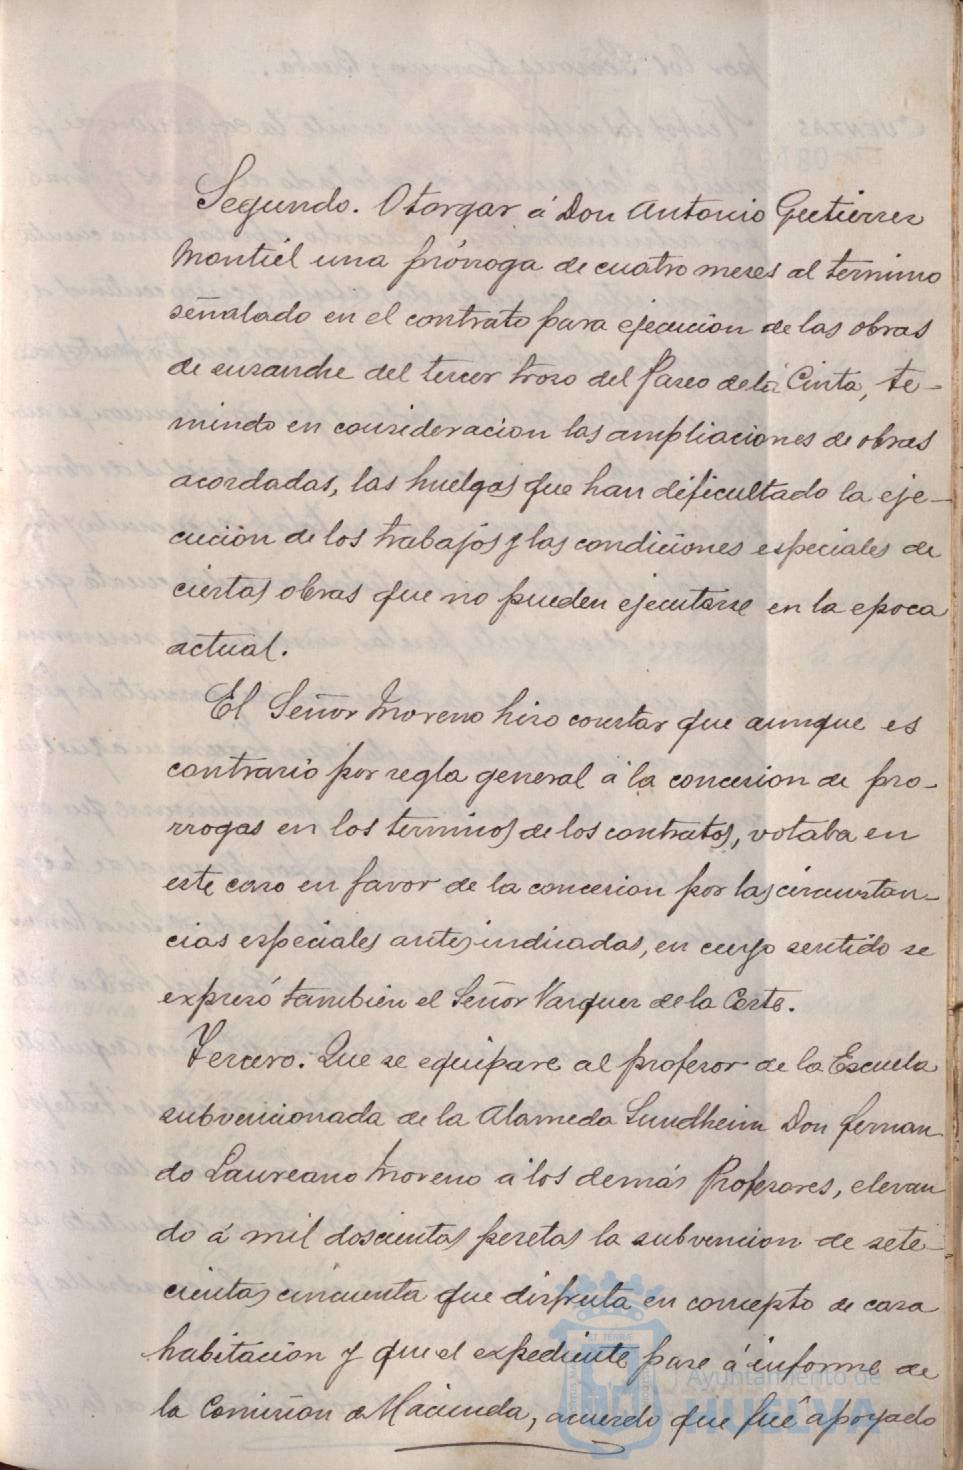 Segundo. Otorgar á Don Antonio Gutierrez
Montiel una prórroga de cuatro meses al termino
señalado en el contrato para ejecucion de las obras
de ensanche del tercer trozo del Paseo de la Cinta, te-
niendo en consideracion las ampliaciones de obras
acordadas, las huelgas que han dificultado la eje-
cución de los trabajos y las condiciones especiales de
ciertas obras que no pueden ejecutarse en la epoca
actual.
El Señor Moreno hizo constar que aunque es
contrario por regla general á la concesion de pro-
rrogas en los terminos de los contratos, votaba en
este caso en favor de la concesion por las circunstan-
cias especiales antes indicadas, en cuyo sentido se
expresó tambien el Señor Vazquez de la Corte.
Tercero. Que se equipare al profesor de la Escuela
subvencionada de la Alameda Sundheim Don Fernan-
do Laureano Moreno á los demás Profesores, elevan
do á mil doscientas pesetas la subvencion de sete-
cientas cincuenta que disfruta en concepto de casa
habitación y que el expediente pase á informe de
la Comisión de Hacienda, acuerdo que fué apoyado
Ayuntamiento de
HUELVA